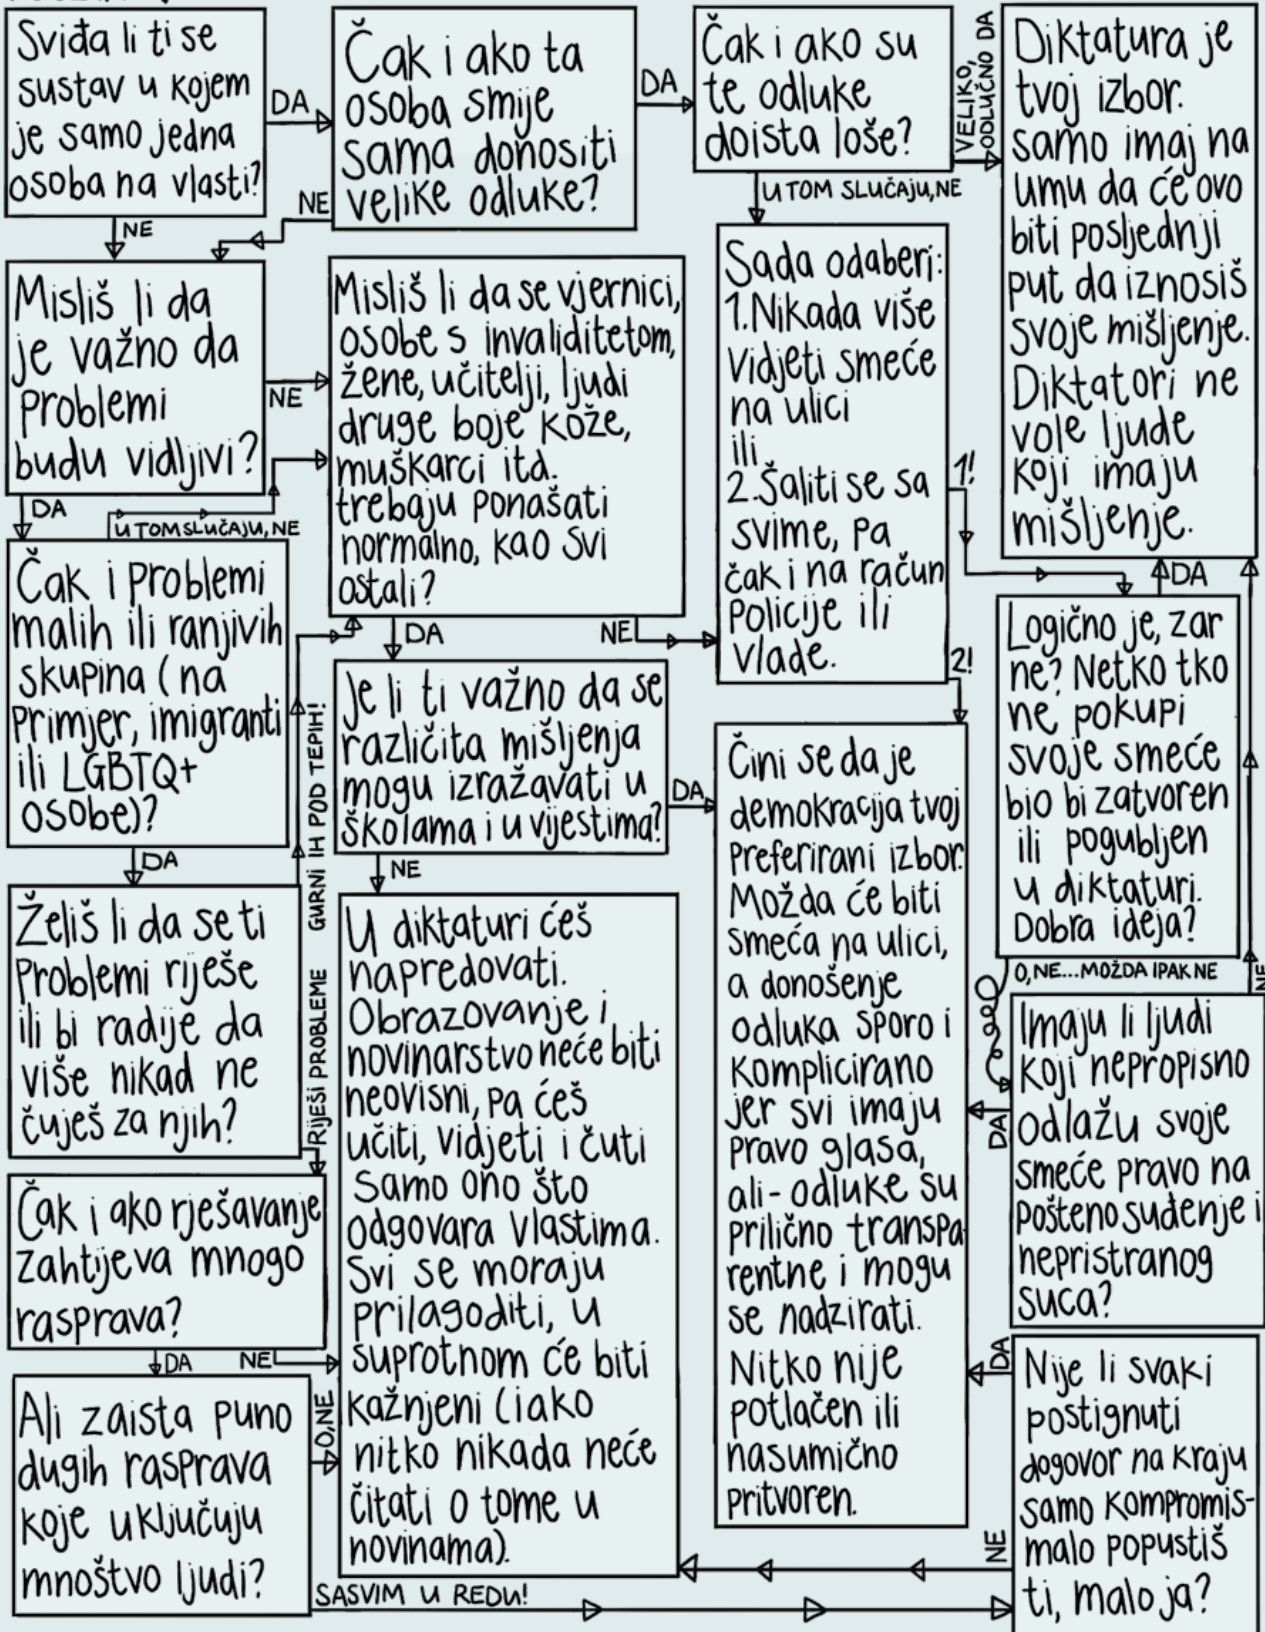 Sviđa li ti se
sustav u kojem
je samo jedna
osoba na vlasti?
DA
NE
Čak i ako ta
osoba smije
sama donositi
velike odluke?
DA
NE
Čak i ako su
te odluke
doista loše?
VELIKO,
ODLUČNO DA
U TOM SLUČAJU, NE
Diktatura je
tvoj izbor.
samo imaj na
umu da će ovo
biti posljednji
put da iznosiš
svoje mišljenje.
Diktatori ne
vole ljude
koji imaju
mišljenje.
Misliš li da
je važno da
problemi
budu vidljivi?
NE
DA
Misliš li da se vjernici,
osobe s invaliditetom,
žene, učitelji, ljudi
druge boje kože,
muškarci itd.
trebaju ponašati
normalno, kao svi
ostali?
DA
NE
Sada odaberi:
1. Nikada više
vidjeti smeće
na ulici
ili
2. Šaliti se sa
svime, pa
čak i na račun
policije ili
vlade.
1!
2!
U TOM SLUČAJU, NE
Čak i problemi
malih ili ranjivih
skupina (na
primjer, imigranti
ili LGBTQ+
osobe)?
DA
Je li ti važno da se
različita mišljenja
mogu izražavati u
školama i u vijestima?
DA
NE
DA
Logično je, zar
ne? Netko tko
ne pokupi
svoje smeće
bio bi zatvoren
ili pogubljen
u diktaturi.
Dobra ideja?
O, NE... MOŽDA IPAK NE
Želiš li da se ti
problemi riješe
ili bi radije da
više nikad ne
čuješ za njih?
GURNI IH POD TEPIH!
RIJEŠI PROBLEME
U diktaturi ćeš
napredovati.
Obrazovanje i
novinarstvo neće biti
neovisni, pa ćeš
učiti, vidjeti i čuti
samo ono što
odgovara vlastima.
Svi se moraju
prilagoditi, u
suprotnom će biti
kažnjeni (iako
nitko nikada neće
čitati o tome u
novinama).
Čini se da je
demokracija tvoj
preferirani izbor.
Možda će biti
smeća na ulici,
a donošenje
odluka sporo i
komplicirano
jer svi imaju
pravo glasa,
ali - odluke su
prilično transpa
rentne i mogu
se nadzirati.
Nitko nije
potlačen ili
nasumično
pritvoren.
NE
Imaju li ljudi
koji nepropisno
odlažu svoje
smeće pravo na
pošteno suđenje i
nepristranog
suca?
DA
Čak i ako rješavanje
zahtijeva mnogo
rasprava?
DA
NE
Ali zaista puno
dugih rasprava
koje uključuju
mnoštvo ljudi?
O, NE
SASVIM U REDU!
Nije li svaki
postignuti
dogovor na kraju
samo kompromis-
malo popustiš
ti, malo ja?
DA
NE